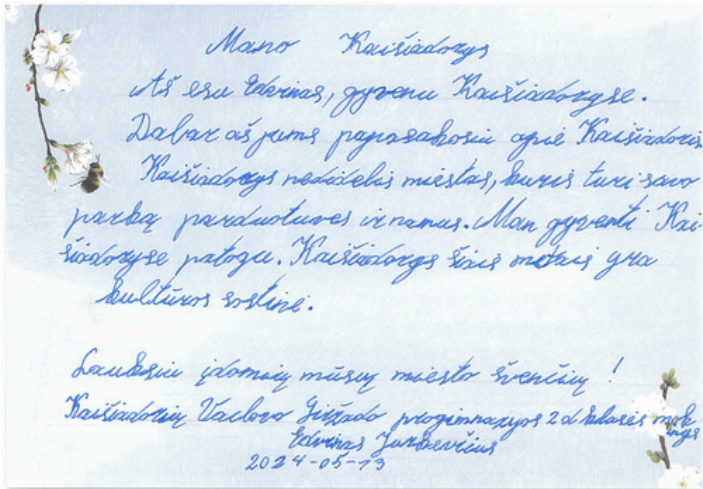 Mano Kaišiadorys
Aš esu Edvinas, gyvenu Kaišiadoryse.
Dabar aš jums papasakosiu apie Kaišiadoris.
Kaišiadorys nedidelis miestas, kuris turi savo
parką parduotuves ir namus. Man gyventi Kai-
šiadoryse patogu. Kaišiadorys šiais metais yra
kultūros sostinė.
Lauksiu įdomių mūsų miesto švenčių !
Kaišiadorių Vaclovo Giržado progimnazijos 2 d klasės mok
inys
Edvinas Jurkevičius
2024-05-13